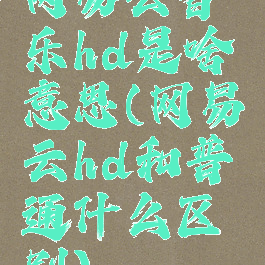 网易云音
乐hd是啥
意思(网易
云hd和普
通什么区
别)